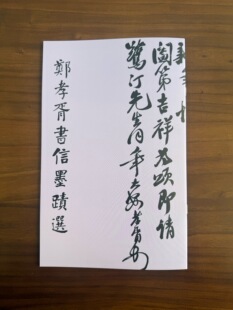 闔第吉祥為頌即請
汀先生同年大安孝胥
鄭孝胥書信墨蹟選